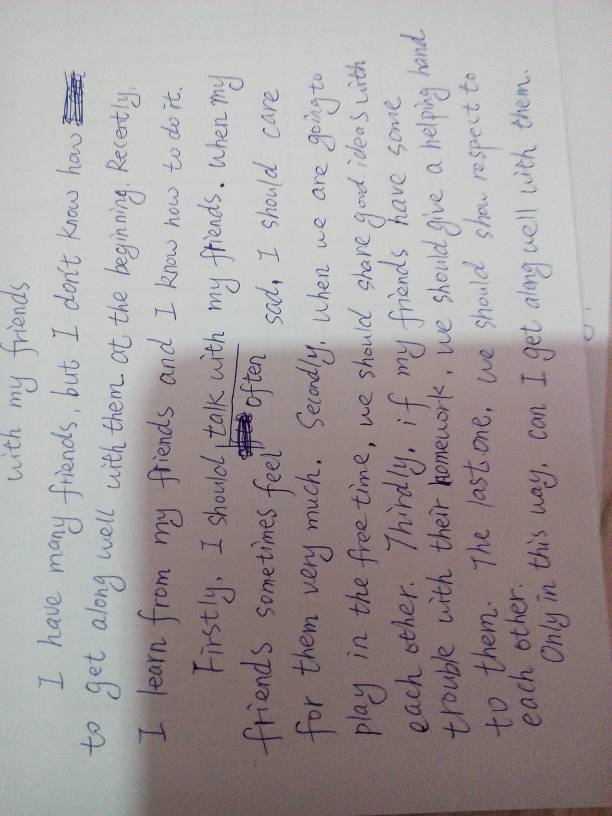 with my friends
I have many friends, but I don't know how
to get along well with them at the beginning. Recently,
I learn from my friends and I know how to do it.
Firstly, I should talk with my friends. When my
friends sometimes feel often sad, I should care
for them very much. Secondly, when we are going to
play in the free time, we should share good ideas with
each other. Thirdly, if my friends have some
trouble with their homework, we should give a helping hand
to them. The last one, we should show respect to
each other.
Only in this way, can I get along well with them.